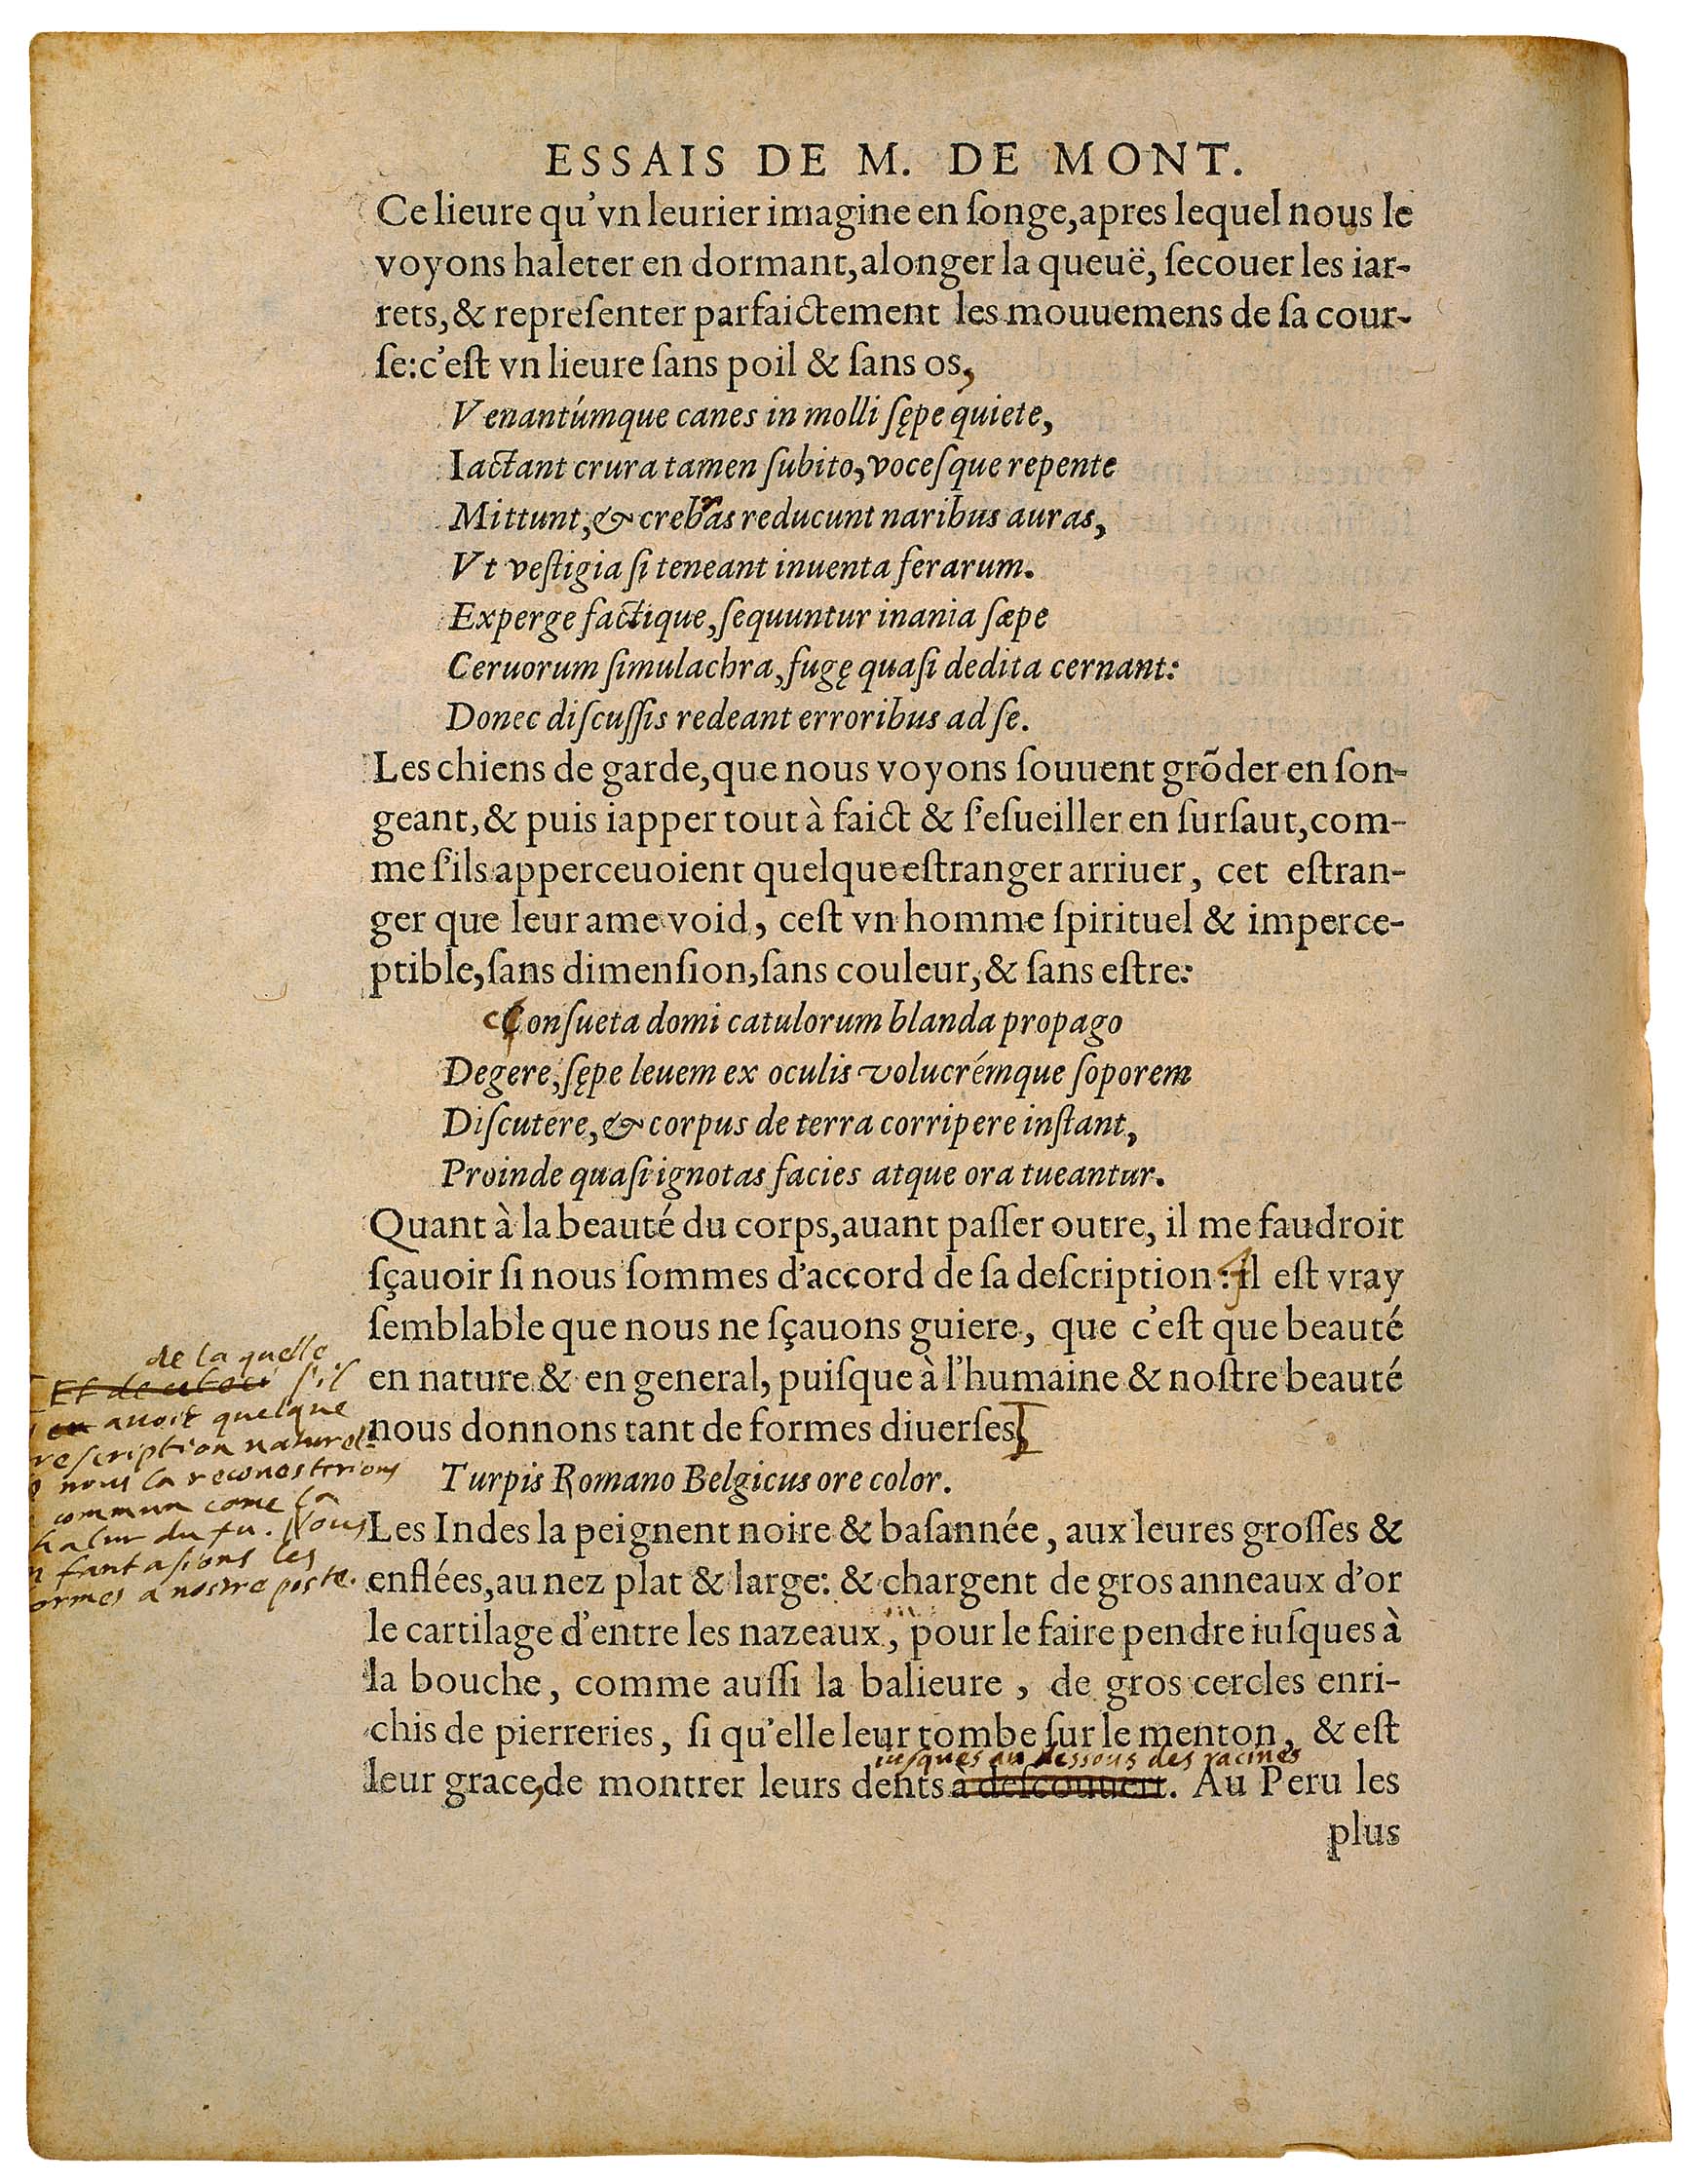 ESSAIS DE M. DE MONT.
Ce lieure qu'vn leurier imagine en ſonge, apres lequel nous le
voyons haleter en dormant, alonger la queuë, ſecouer les iar-
rets, & repreſenter parfaictement les mouuemens de ſa cour-
ſe: c'eſt vn lieure ſans poil & ſans os,
Venantúmque canes in molli ſępe quiete,
Iactant crura tamen ſubito, voceſque repente
Mittunt, & crebras reducunt naribus auras,
Vt veſtigia ſi teneant inuenta ferarum.
Experge factique, ſequuntur inania ſæpe
Ceruorum ſimulachra, fugę quaſi dedita cernant:
Donec diſcuſſis redeant erroribus ad ſe.
Les chiens de garde, que nous voyons ſouuent grõder en ſon-
geant, & puis iapper tout à faict & ſ'eſueiller en ſurſaut, com-
me ſ'ils apperceuoient quelque eſtranger arriuer, cet eſtran-
ger que leur ame void, ceſt vn homme ſpirituel & imperce-
ptible, ſans dimenſion, ſans couleur, & ſans eſtre:
Conſueta domi catulorum blanda propago
Degere, ſępe leuem ex oculis volucrémque ſoporem
Diſcutere, & corpus de terra corripere inſtant,
Proinde quaſi ignotas facies atque ora tueantur.
Quant à la beauté du corps, auant paſſer outre, il me faudroit
ſçauoir ſi nous ſommes d'accord de ſa deſcription: il eſt vray
ſemblable que nous ne ſçauons guiere, que c'eſt que beauté
en nature & en general, puiſque à l'humaine & noſtre beauté
nous donnons tant de formes diuerſes
de la quelle
ſ'il
en auoit quelque
reſcription naturel-
nous la reconestrions
commun come la
halur du fu. Nous
fantasions les
ormes a nostre poste.
Turpis Romano Belgicus ore color.
Les Indes la peignent noire & baſannée, aux leures groſſes &
enflées, au nez plat & large: & chargent de gros anneaux d'or
le cartilage d'entre les nazeaux, pour le faire pendre iuſques à
la bouche, comme auſſi la balieure, de gros cercles enri-
chis de pierreries, ſi qu'elle leur tombe ſur le menton, & eſt
iusques au dessous des racines
leur grace, de montrer leurs dents à deſcouuert. Au Peru les
plus